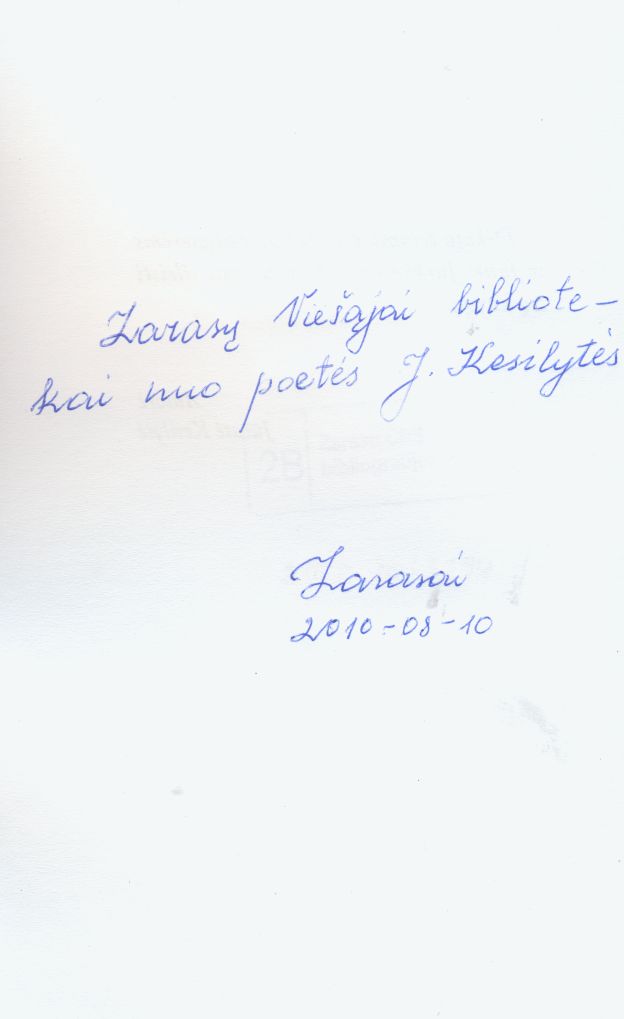 Zarasų Viešajai bibliote-
kai nuo poetės J. Kesilytės
Zarasai
2010-08-10